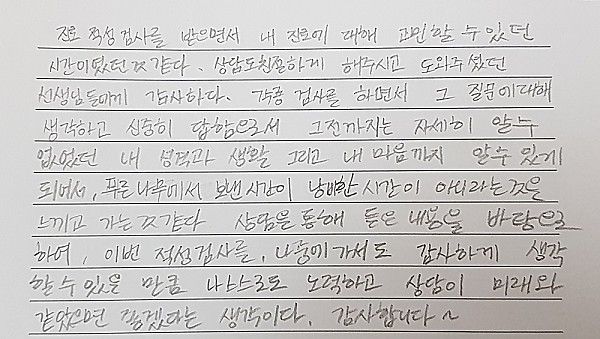 진로 적성검사를 받으면서 내 진로에 대해 고민할 수 있던
시간이였던것 같다. 상담도친절하게 해주시고 도와주셨던
선생님들에게 감사하다. 각종 검사를 하면서 그 질문에대해
생각하고 신중히 답함으로서 그전까지는 자세히 알수
없었던 내 성격과 생활 그리고 내 마음까지 알수 있게
되어서, 푸른나무에서 보낸시간이 낭비한 시간이 아니라는것을
느끼고 가는것 같다 상담을 통해 들은 내용을 바탕으로
하여, 이번 적성검사를, 나중에가서도 감사하게 생각
할 수 있을 만큼 나스스로도 노력하고 상담이 미래와
같았으면 좋겠다는 생각이다. 감사합니다~